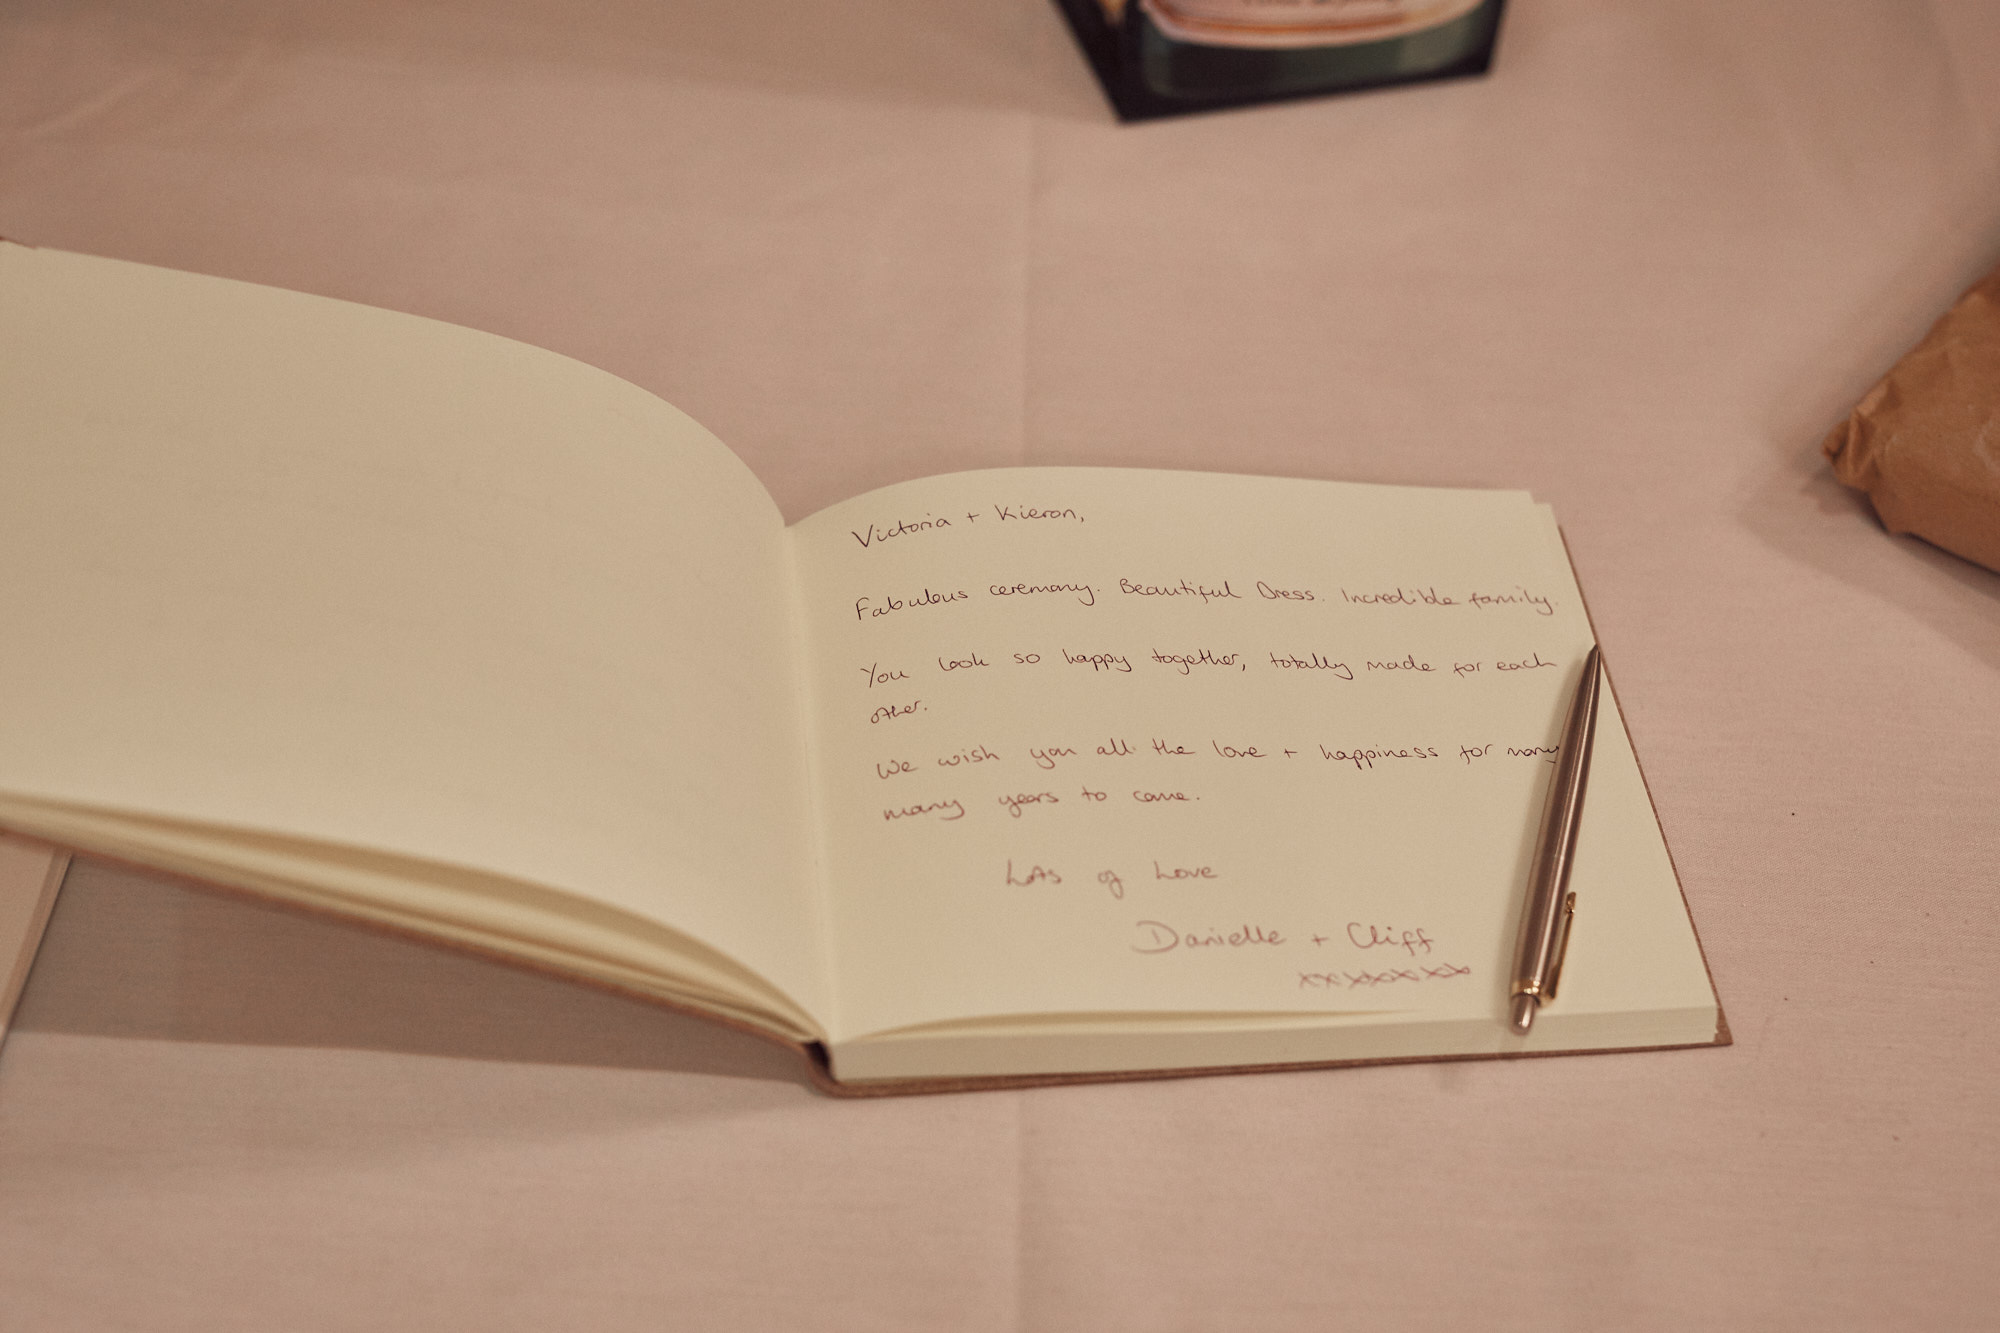 Victoria + Kieron,
Fabulous ceremony. Beautiful Dress. Incredible family.
You look so happy together, totally made for each
other.
We wish you all the love + happiness for many
many years to come.
Lots of Love
Danielle + Cliff
xxxxxxx